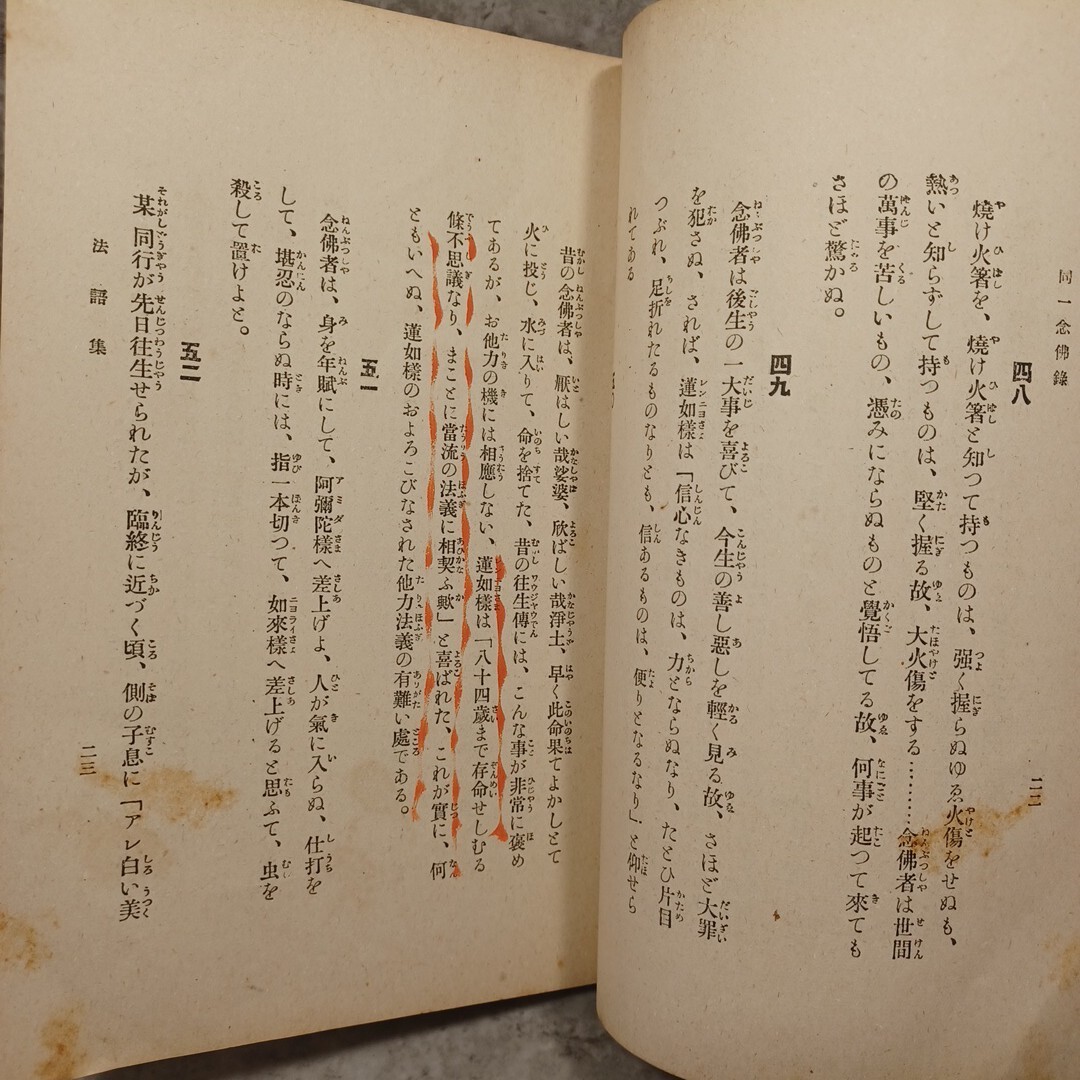 同一念佛錄
二二
四八
燒け火箸を、燒け火箸と知つて持つものは、强く握らぬゆゑ火傷をせぬも、
熱いと知らずして持つものは、堅く握る故、大火傷をする………念佛者は世間
の萬事を苦しいもの、憑みにならぬものと覺悟してる故、何事が起つて來ても
さほど驚かぬ。
四九
念佛者は後生の一大事を喜びて、今生の善し惡しを輕く見る故、さほど大罪
を犯さぬ、されば、蓮如樣は「信心なきものは、力とならぬなり、たとひ片目
つぶれ、足折れたるものなりとも、信あるものは、便りとなるなり」と仰せら
れてある
昔の念佛者は、厭はしい哉娑婆、欣ばしい哉淨土、早く此命果てよかしとて
火に投じ、水に入りて、命を捨てた、昔の往生傳には、こんな事が非常に褒め
てあるが、お他力の機には相應しない、蓮如樣は「八十四歲まで存命せしむる
條不思議なり、まことに當流の法義に相契ふ歟」と喜ばれた、これが實に、何
ともいへぬ、蓮如樣のおよろこびなされた他力法義の有難い處である。
五一
念佛者は、身を年賦にして、阿彌陀樣へ差上げよ、人が氣に入らぬ、仕打を
して、堪忍のならぬ時には、指一本切つて、如來樣へ差上げると思ふて、虫を
殺して置けよと。
五二
某同行が先日往生せられたが、臨終に近づく頃、側の子息に「アレ白い美
法語集
二三